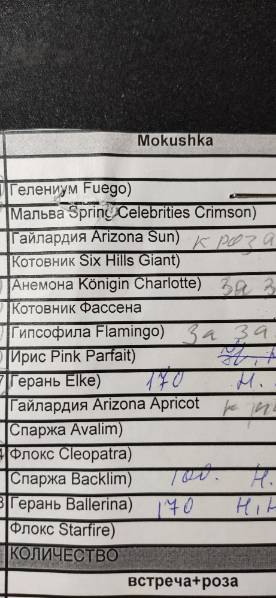 Mokushka
Гелениум Fuego)
Мальва Spring Celebrities Crimson)
Гайлардия Arizona Sun) к роза
Котовник Six Hills Giant)
Анемона Königin Charlotte) За з
Котовник Фассена
Гипсофила Flamingo) За За
Ирис Pink Parfait) Н.
Герань Elke) 170 Н.
Гайлардия Arizona Apricot к
Спаржа Avalim)
Флокс Cleopatra)
Спаржа Backlim) 100. Н.
Герань Ballerina) 170 Н.Н
Флокс Starfire)
КОЛИЧЕСТВО
встреча+роза